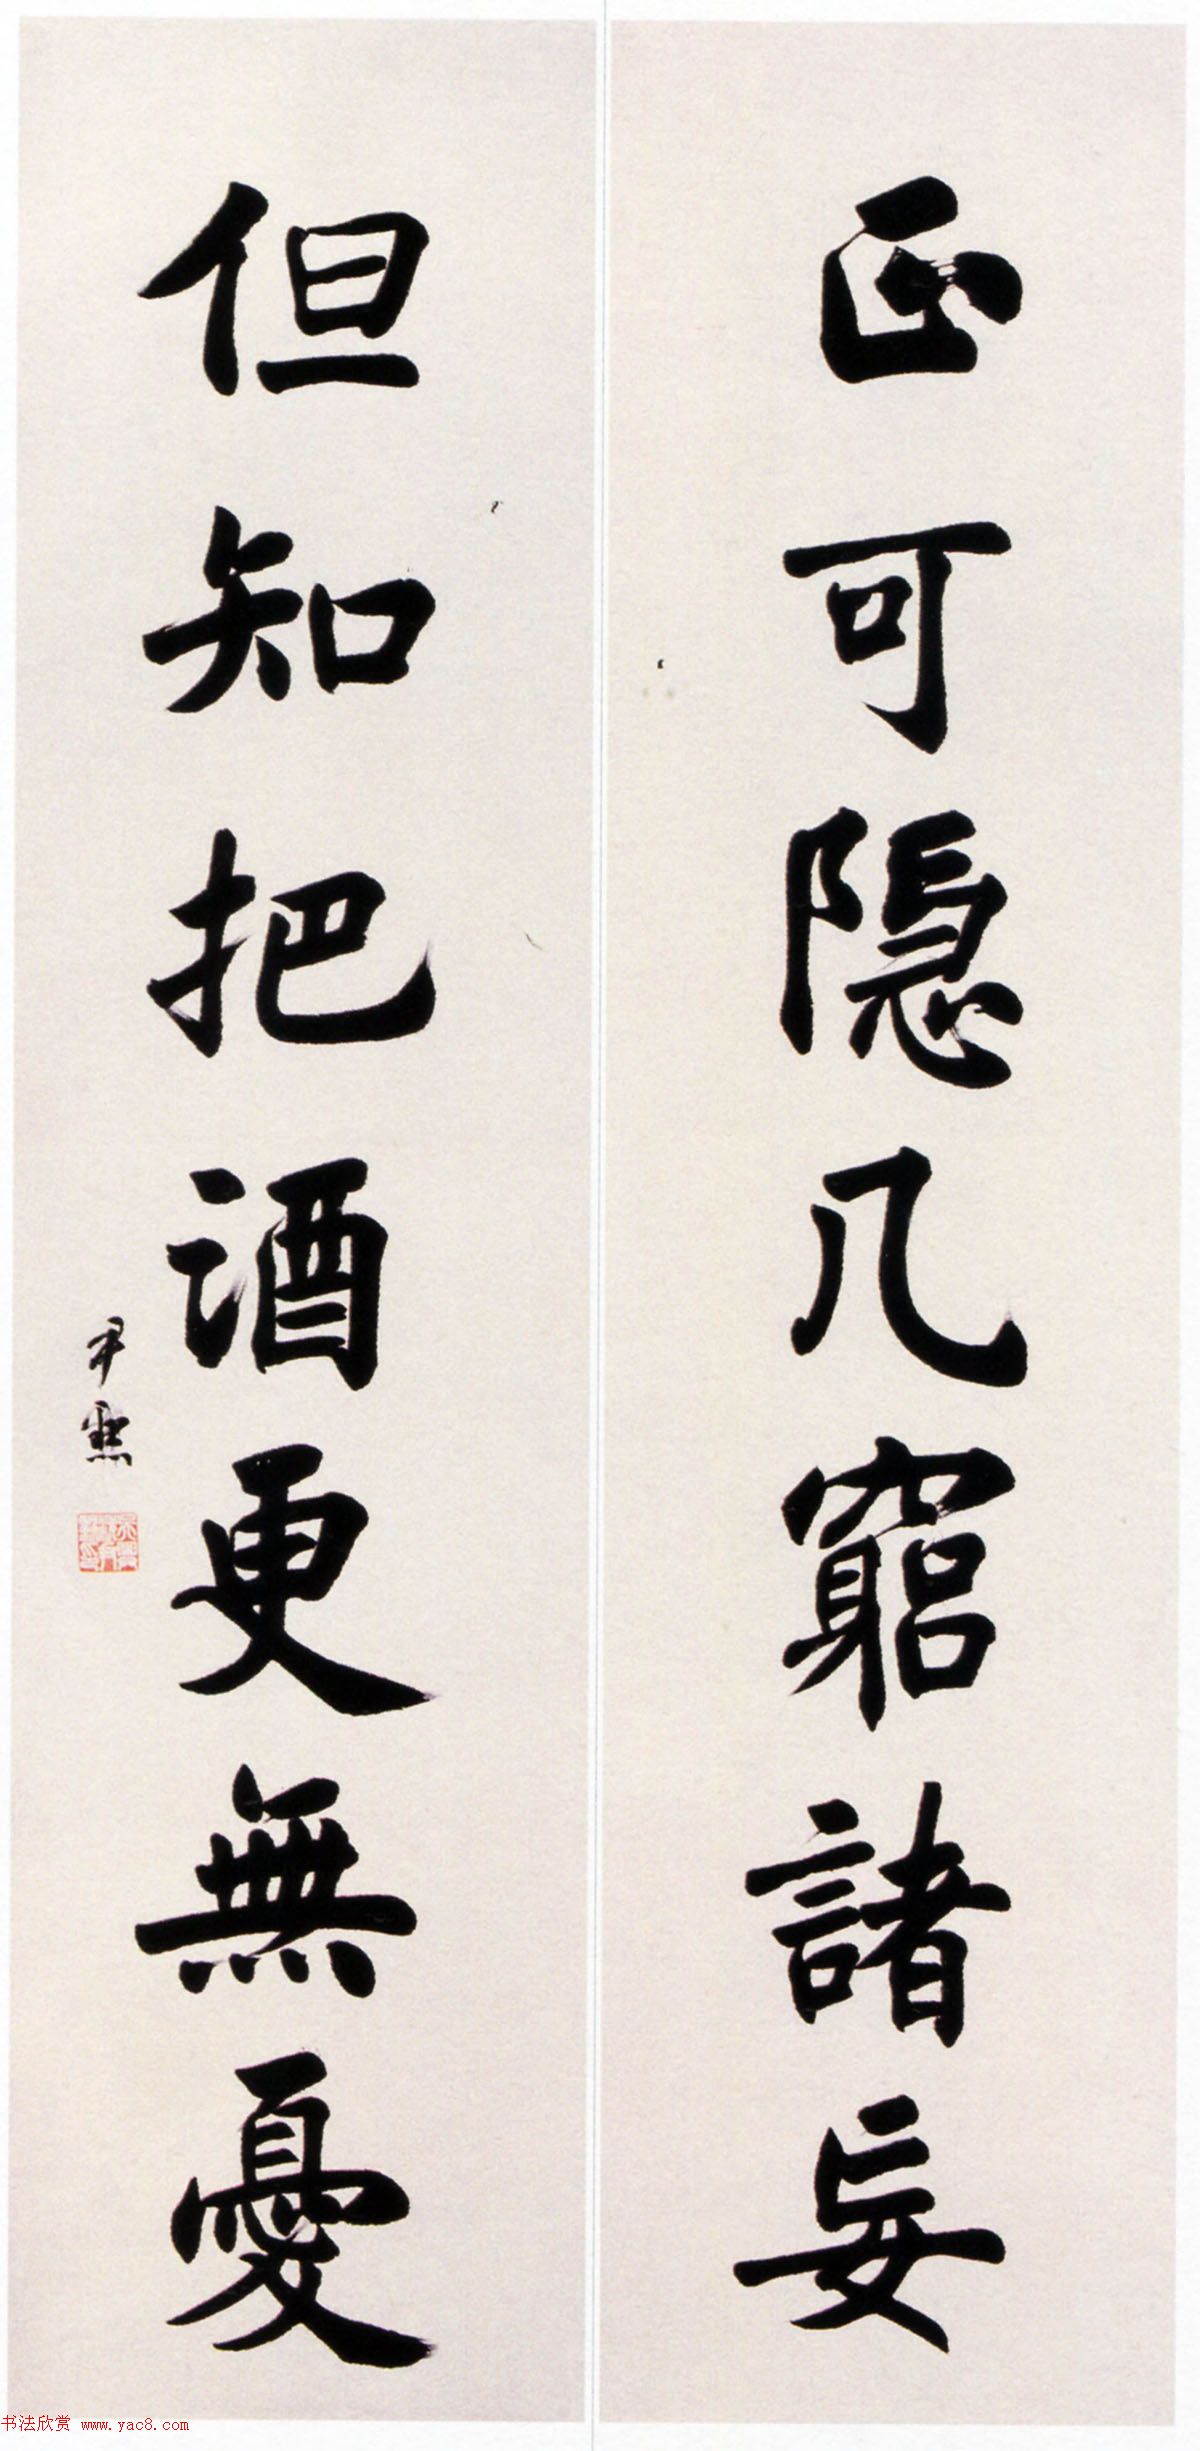 正可隱几窮諸妄
但知把酒更無憂
尹默
书法欣赏 www.yac8.com